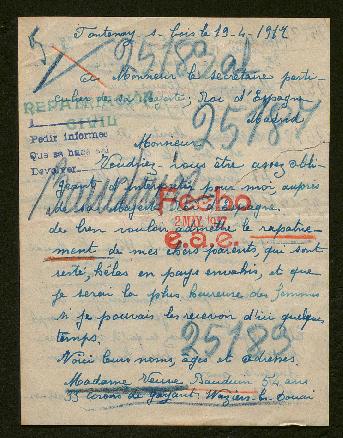 Fontenay s- bois le 19-4-1917
5
25182
A Monsieur le secrétaire parti-
culier de sa Majesté, Roi d'Espagne
Madrid
REPATRIACION
CIVIL
25187
Pedir informes
Que se haga
Devolver
Monsieur
Voudriez-vous être assez obli-
geant d'interpréter pour moi, auprès
de sa Majesté d'Espagne
Fecho
2 MAY. 1917
e.a.e.
de bien vouloir admettre le rapatrie-
ment de mes chers parents, qui sont
resté, hélas en pays envahis, et que
je serai la plus heureuse des femmes
si je pouvais les recevoir d'ici quelques
temps.
25189
Voici leurs noms, âges et adresses.
Madame Veuve Bauduin 54 ans
33 corons de gayant Waziers-lez-Douai